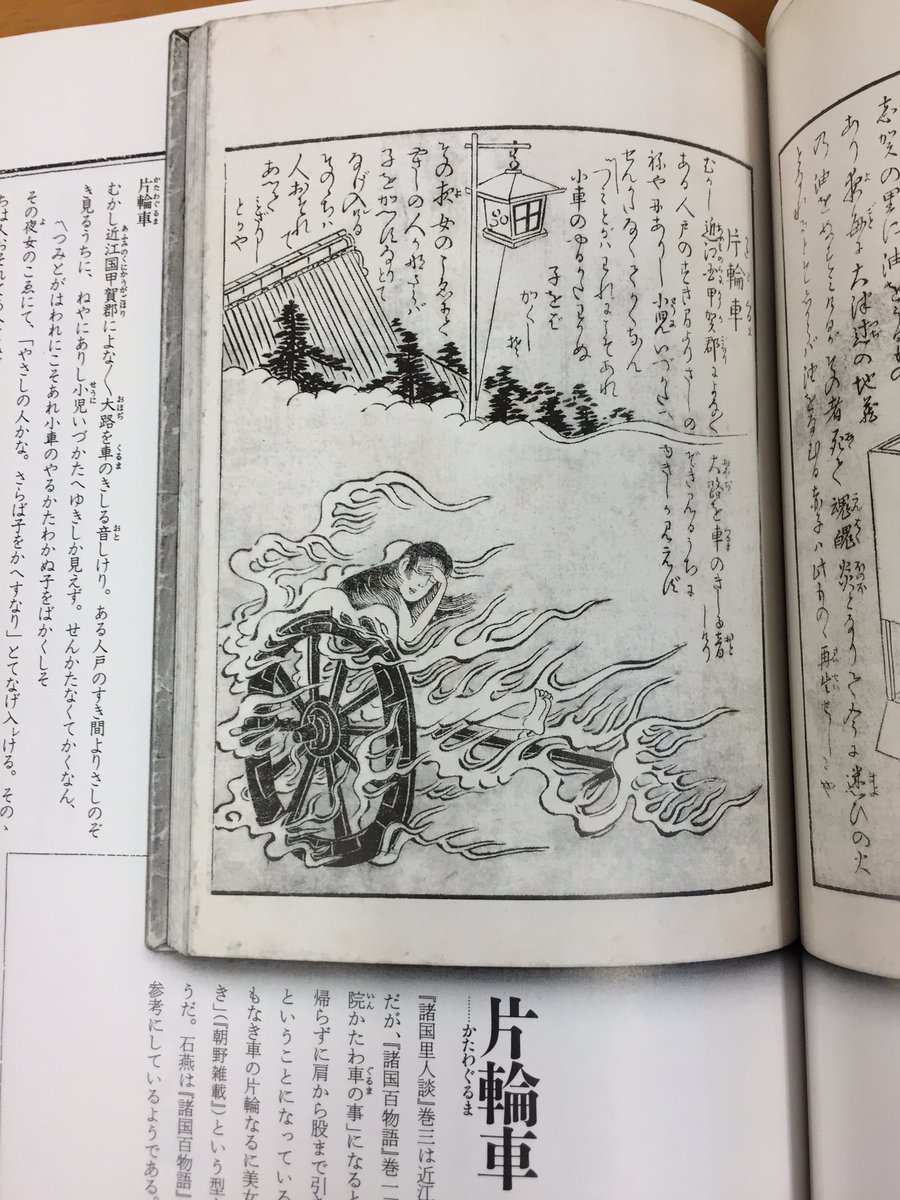 志賀の里に油をうるもの
あり夜毎に大津辻の地蔵
の油をぬすみけるがその者死て魂魄炎となりて今に迷ひの火
油をなむる赤子は此ものゝ再生せしにや
片輪車
むかし近江国甲賀郡によなよな大路を車のきしる音しけり
ある人戸のすき間よりさしのぞき見るうちに
ねやにありし小児いづかたへゆきしか見えず
せんかたなくてかくなん
つみとがはわれにこそあれ
小車のやるかたわかぬ
子をば
かくしそ
その夜女のこゑにて
やさしの人かなさらば
子をかへすなりとて
なげ入ける
そのゝちは
人おそれて
あへてみざりし
とかや
片輪車
かたわぐるま
むかし近江国甲賀郡によな〳〵大路を車のきしる音しけり。ある人戸のすき間よりさしのぞ
き見るうちに、ねやにありし小児いづかたへゆきしか見えず。せんかたなくてかくなん、
つみとがはわれにこそあれ小車のやるかたわかぬ子をばかくしそ
その夜女のこゑにて、「やさしの人かな。さらば子をかへすなり」とてなげ入ける。その、
ちは人おそれて
片輪車
……かたわぐるま
『諸国里人談』巻三は近江
だが、『諸国百物語』巻一
院かたわ車の事」になると
帰らずに肩から股まで引き
ということになっている
もなき車の片輪なるに美女
き」(『朝野雑載』)という型
うだ。石燕は『諸国百物語』
参考にしているようである。